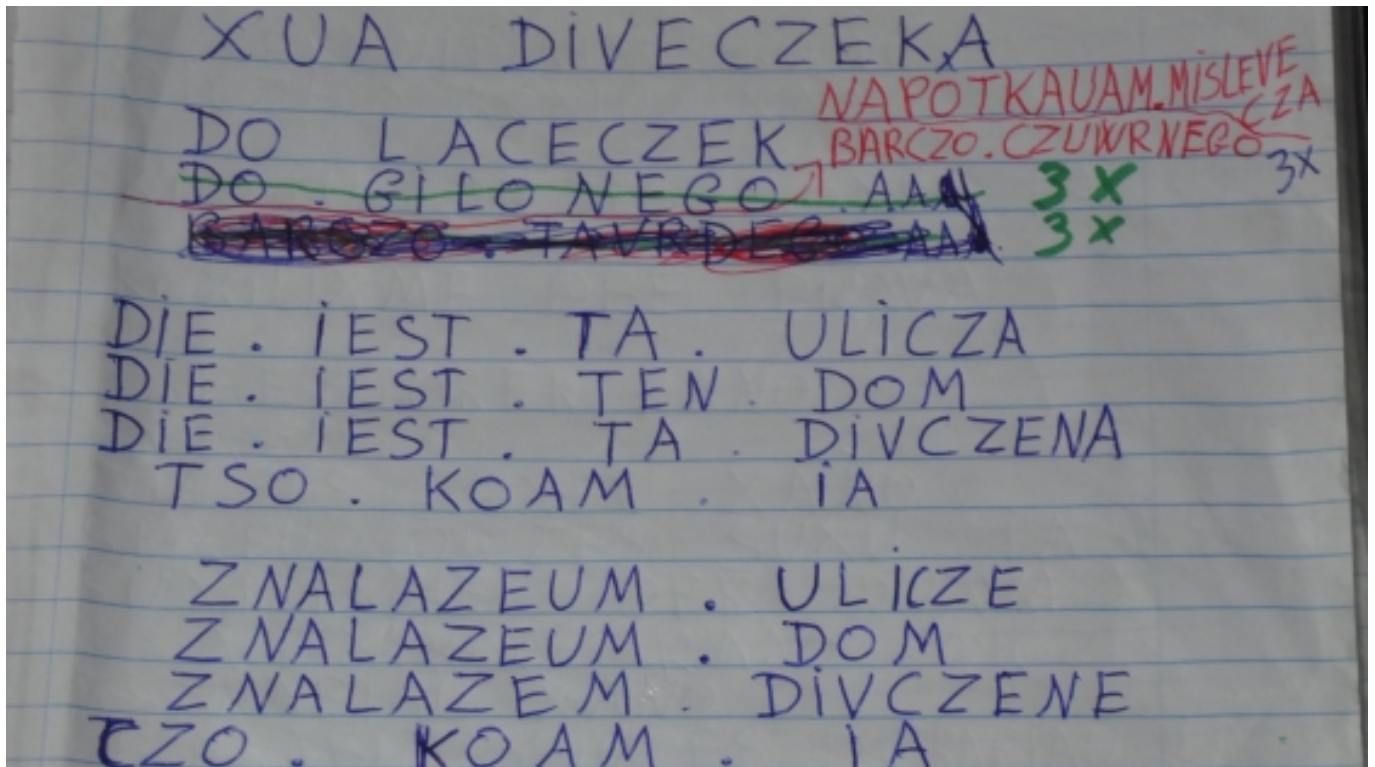 XUA DiVECZEKA
NAPOTKAUAM.MiSLEVE
CZA
DO LACECZEK
BARCZO.CZUWRNEGO
3X
DO . GiLONEGO . AAA 3 X
BARCZO . TAVRDEGO AAA 3 X
DiE . iEST . TA . ULiCZA
DiE . iEST . TEN . DOM
DiE . iEST . TA . DiVCZENA
TSO . KOAM . iA
ZNALAZEUM . ULiCZE
ZNALAZEUM . DOM
ZNALAZEM . DiVCZENE
CZO . KOAM . IA